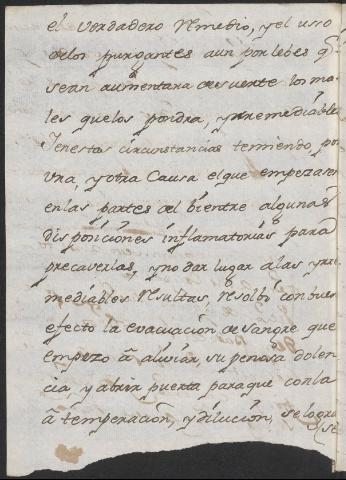 el verdadero remedio, y el uso
de los purgantes aun por lebes q.
sean aumentara de suerte los ma-
les que los pondra, yrremediables
Y en estas circunstancias temiendo por
una, y otra Causa el que empezaren
en las partes del bientre algunas
disposiciones inflamatorias para
precaverlas, y no dar lugar a las yrre
mediables resultas, resolbi con buen
efecto la evacuacion de sangre que
empezo a aliviar, su penosa dolen
cia, y abrir puerta para que con la
atemperacion, y dilucion, se logra
se